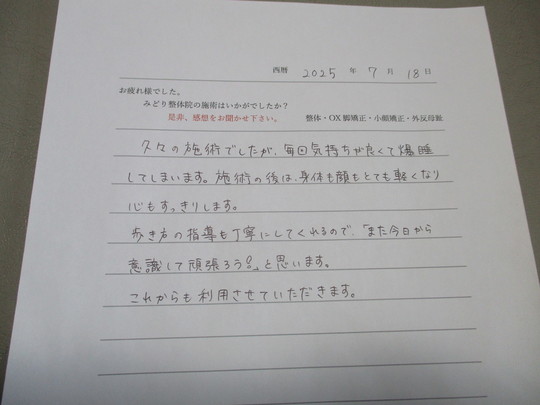 西暦 2025 年 7 月 18 日
お疲れ様でした。
みどり整体院の施術はいかがでしたか?
是非、感想をお聞かせ下さい。 整体・OX脚矯正・小顔矯正・外反母趾
久々の施術でしたが、毎回気持ちが良くて爆睡
してしまいます。施術の後は、身体も顔もとても軽くなり
心もすっきりします。
歩き方の指導も丁寧にしてくれるので、「また今日から
意識して頑張ろう!」と思います。
これからも利用させていただきます。